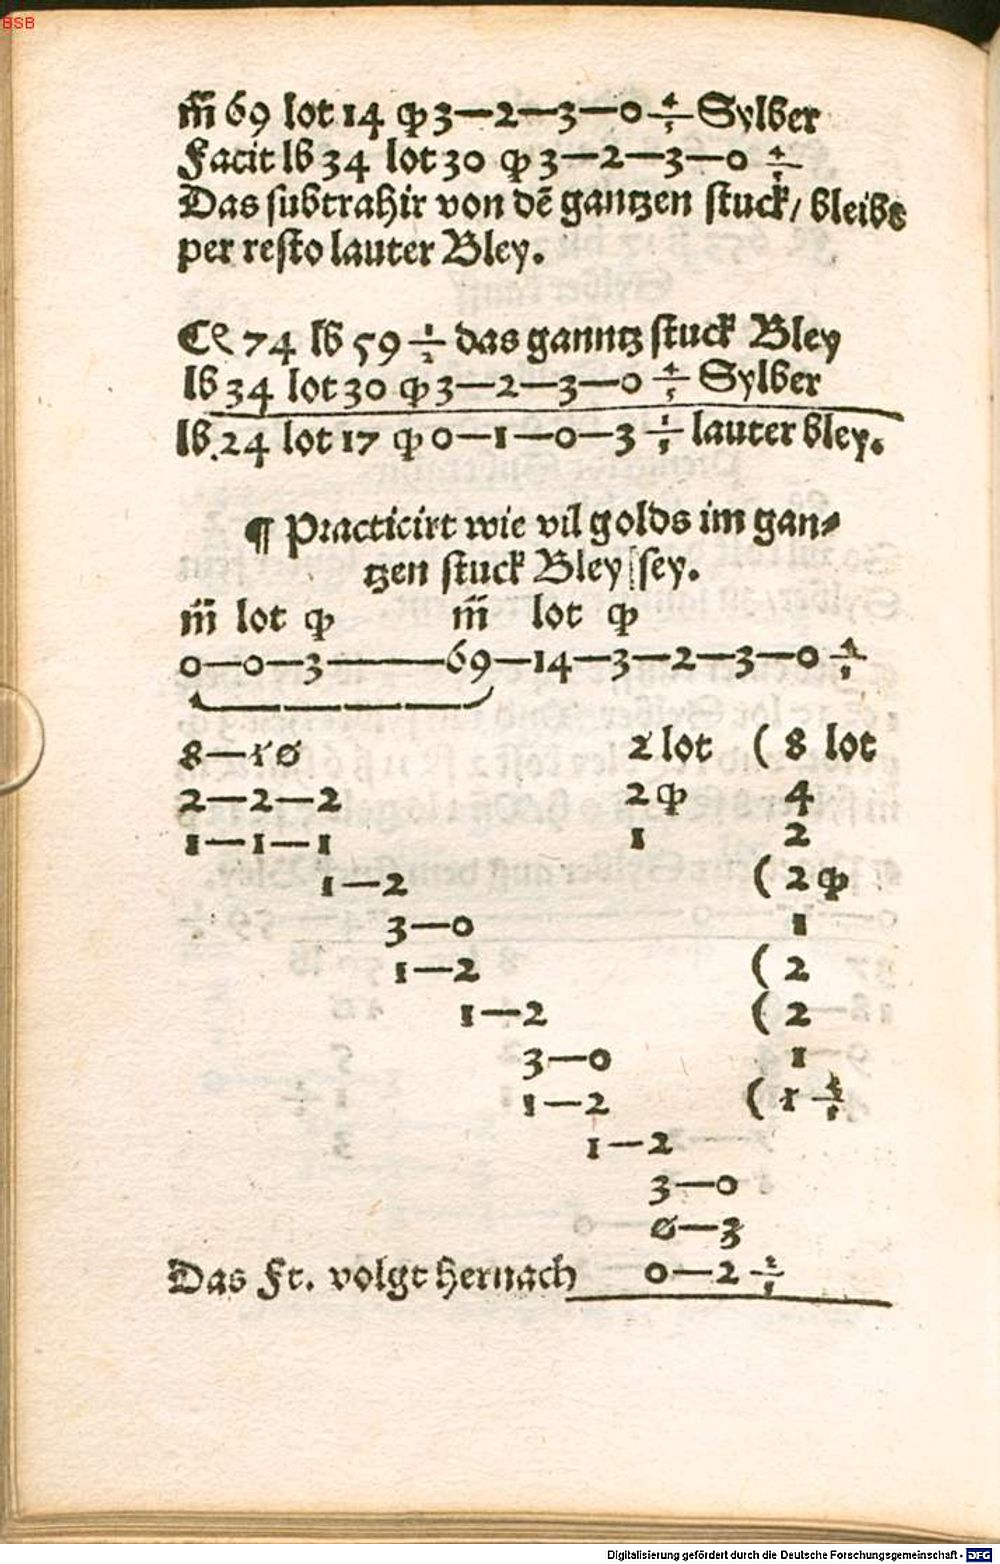 BSB
m̃ 69 lot 14 qp 3—2—3—0 4/5 Sylber
Facit lb 34 lot 30 qp 3—2—3—0 4/5
Das subtrahir von dē gantzen stuck/ bleibt
per resto lauter Bley.
Ce 74 lb 59 1/2 das ganntz stuck Bley
lb 34 lot 30 qp 3—2—3—0 4/5 Sylber
lb.24 lot 17 qp 0—1—0—3 1/5 lauter bley.
¶ Practicirt wie vil golds im gan⸗
tzen stuck Bley sey.
m̃ lot qp m̃ lot qp
0—0—3———69—14—3—2—3—0 4/5
8—10 2 lot ( 8 lot
2—2—2 2 qp 4
1—1—1 1 2
1—2 ( 2 qp
3—0 1
1—2 ( 2
1—2 ( 2
3—0 1
1—2 ( 1 4/5
1—2
3—0
0—3
Das Ft. volgt hernach 0—2 2/5
Digitalisierung gefördert durch die Deutsche Forschungsgemeinschaft - DFG